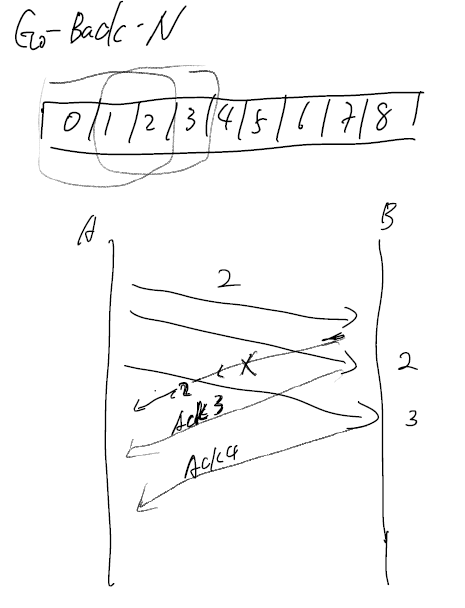 Go-Back-N
0 1 2 3 4 5 6 7 8
A B
2
X
2 2
Ack3
3
Ack4